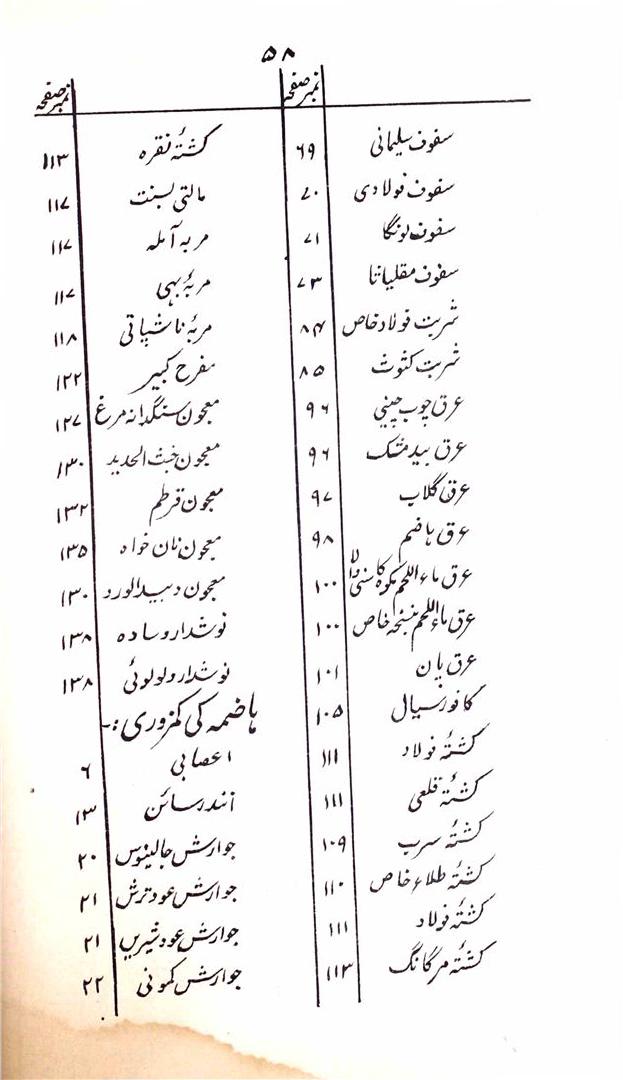 ۵۸
نمبر صفحہ
سفوف سلیمانی ۶۹
سفوف فولادی ۷۰
سفوف لونگا ۷۱
سفوف مقلیاثا ۷۳
شربت فولاد خاص ۸۴
شربت کثوث ۸۵
عرق چوب چینی ۹۶
عرق بید مشک ۹۶
عرق گلاب ۹۷
عرق ہاضم ۹۸
عرق ماء اللحم مکوہ کاسنی والا ۱۰۰
عرق ماء اللحم بنسخہ خاص ۱۰۰
عرق پان ۱۰۱
کافور سیال ۱۰۵
کشتۂ فولاد ۱۱۱
کشتۂ قلعی ۱۱۱
کشتۂ سرب ۱۰۹
کشتۂ طلاء خاص ۱۱۰
کشتۂ فولاد ۱۱۱
کشتۂ مرگانگ ۱۱۳
نمبر صفحہ
کشتۂ نقرہ ۱۱۳
مالتی بسنت ۱۱۷
مربہ آملہ ۱۱۷
مربۂ بہی ۱۱۷
مربۂ ناشپاتی ۱۱۸
مفرح کبیر ۱۲۲
معجون سنگدانہ مرغ ۱۲۷
معجون خبث الحدید ۱۳۰
معجون قرطم ۱۳۲
معجون نان خواہ ۱۳۵
معجون دبیدالورد ۱۳۰
نوشدارو سادہ ۱۳۸
نوشدارو لولوئی ۱۳۸
ہاضمہ کی کمزوری :-
اعصابی ۶
آنند رسائن ۱۳
جوارش جالینوس ۲۰
جوارش عود ترش ۲۱
جوارش عود شیریں ۲۱
جوارش کمونی ۲۲